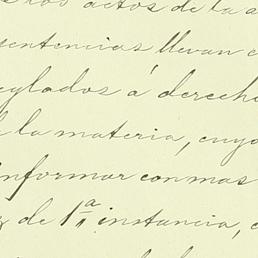 actos de la a
sentencias llevan e
reglados á derecho
la materia, cuyo
informar con mas
de 1ª instancia, e